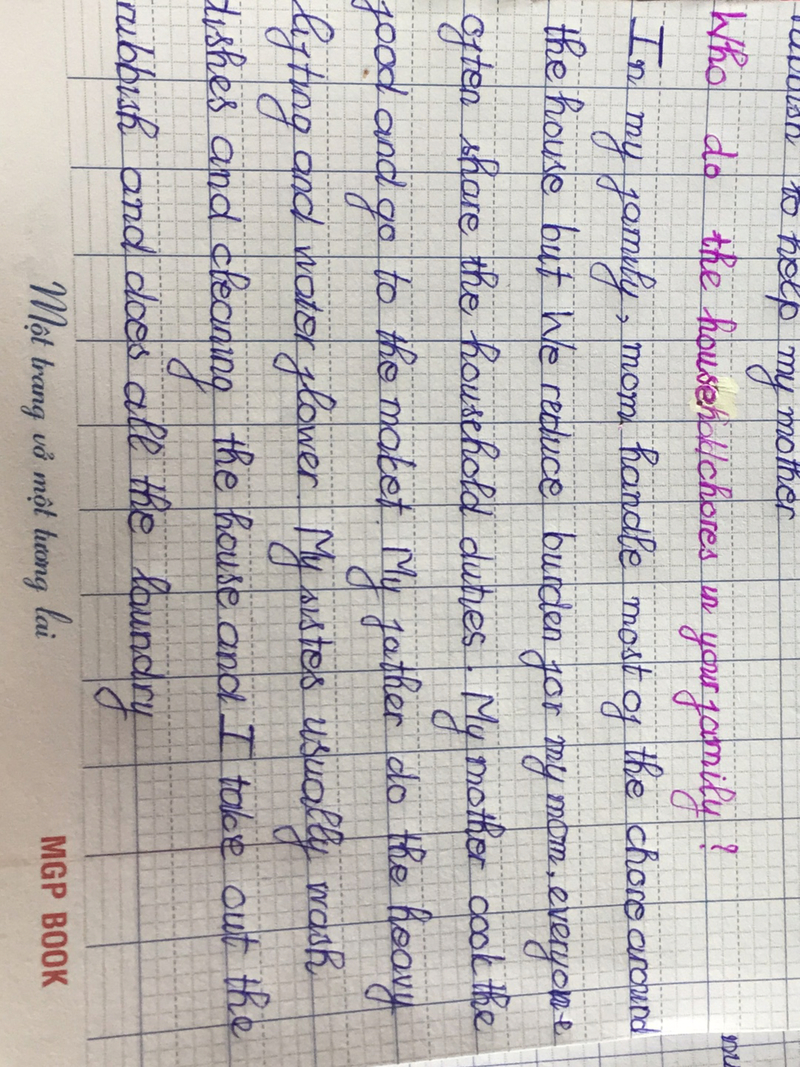 rubbish to help my mother
Who do the household chores in your family?
In my family, mom handle most of the chore around
the house but We reduce burden for my mom, everyone
often share the household duties. My mother cook the
food and go to the maket. My father do the heavy
lifting and water flower. My sistes usually wash
dishes and cleaning the house and I take out the
rubbish and does all the loundry
Một trang vở một tương lai
MGP BOOK